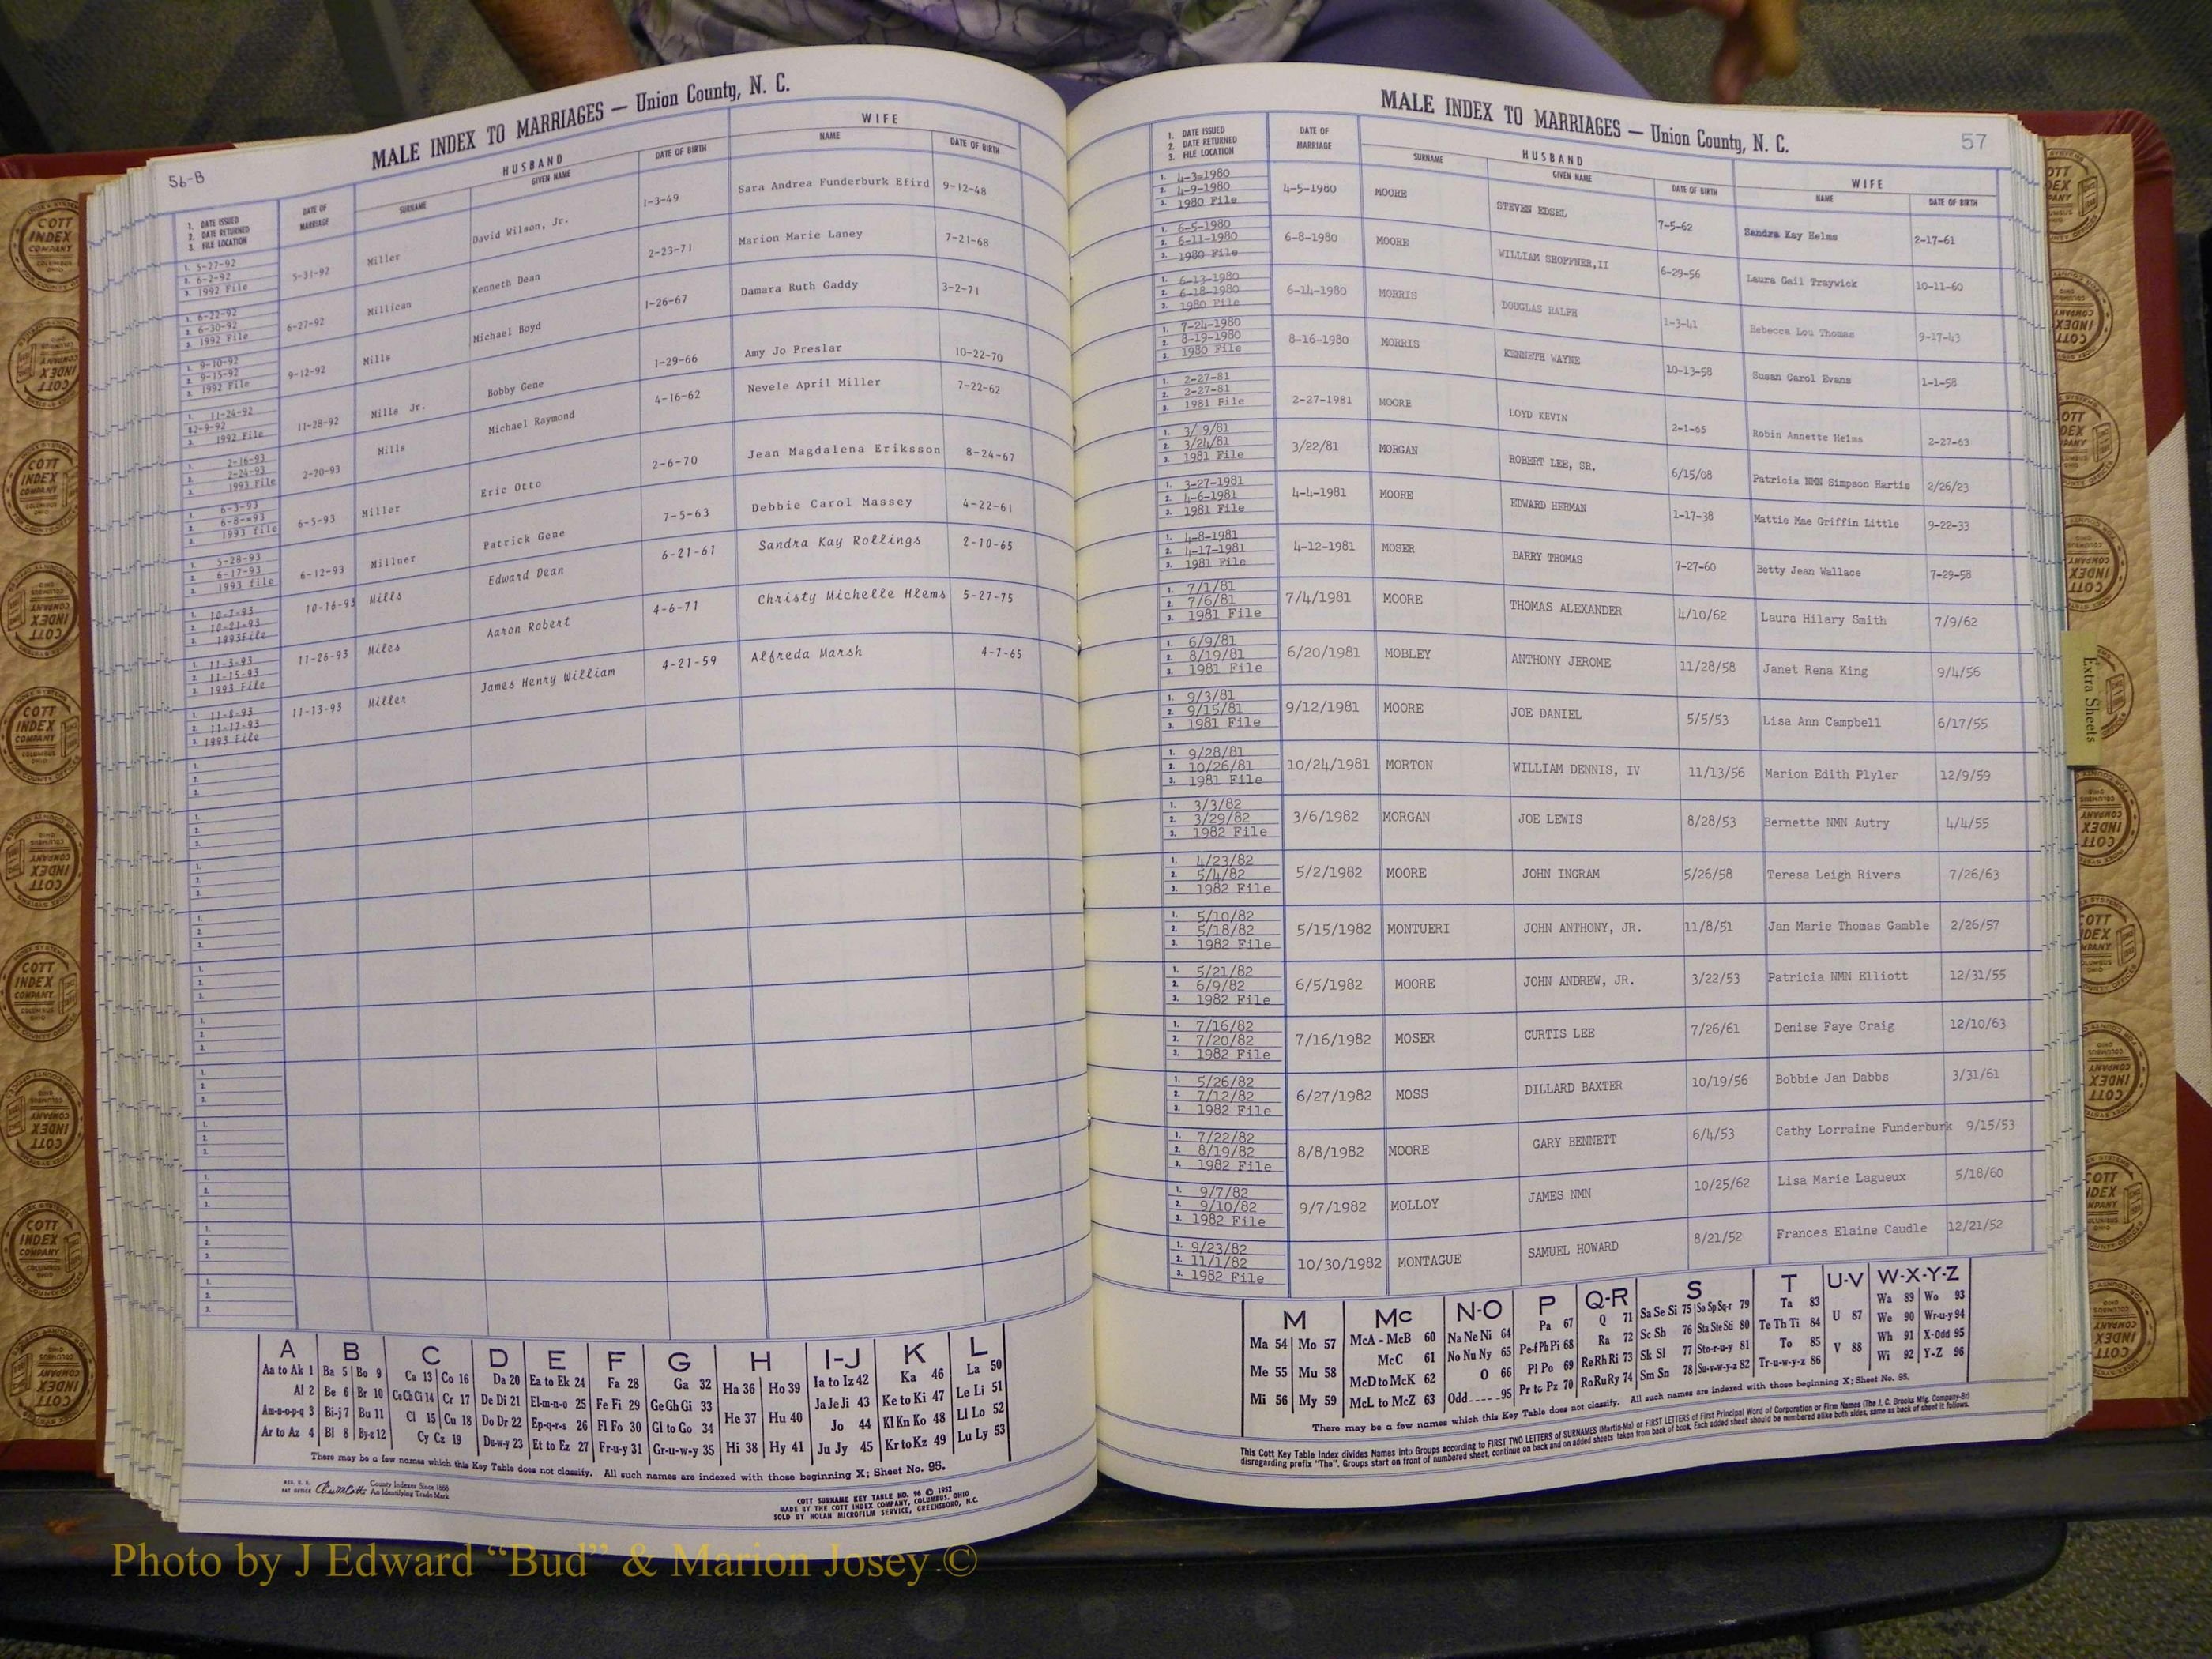 56-B
MALE INDEX TO MARRIAGES — Union County, N. C.
1. DATE ISSUED
2. DATE RETURNED
3. FILE LOCATION
DATE OF MARRIAGE
HUSBAND
SURNAME GIVEN NAME DATE OF BIRTH
WIFE
NAME DATE OF BIRTH
1. 5-27-92
2. 6-2-92
3. 1992 File
5-31-92 Miller David Wilson, Jr. 1-3-49 Sara Andrea Funderburk Efird 9-12-48
1. 6-22-92
2. 6-30-92
3. 1992 File
6-27-92 Millican Kenneth Dean 2-23-71 Marion Marie Laney 7-21-68
1. 9-10-92
2. 9-15-92
3. 1992 File
9-12-92 Mills Michael Boyd 1-26-67 Damara Ruth Gaddy 3-2-71
1. 11-24-92
12-9-92
3. 1992 File
11-28-92 Mills Jr. Bobby Gene 1-29-66 Amy Jo Preslar 10-22-70
1. 2-16-93
2. 2-24-93
3. 1993 File
2-20-93 Mills Michael Raymond 4-16-62 Nevele April Miller 7-22-62
1. 6-3-93
2. 6-8-=93
3. 1993 file
6-5-93 Miller Eric Otto 2-6-70 Jean Magdalena Eriksson 8-24-67
1. 5-28-93
2. 6-17-93
3. 1993 file
6-12-93 Millner Patrick Gene 7-5-63 Debbie Carol Massey 4-22-61
1. 10-7-93
2. 10-21-93
3. 1993File
10-16-93 Mills Edward Dean 6-21-61 Sandra Kay Rollings 2-10-65
1. 11-3-93
2. 11-15-93
3. 1993 File
11-26-93 Miles Aaron Robert 4-6-71 Christy Michelle Hlems 5-27-75
1. 11-8-93
2. 11-17-93
3. 1993 File
11-13-93 Miller James Henry William 4-21-59 Alfreda Marsh 4-7-65
A B C D E F G H I-J K L
Aa to Ak 1 Ba 5 Bo 9 Ca 13 Co 16 Da 20 Ea to Ek 24 Fa 28 Ga 32 Ha 36 Ho 39 Ia to Iz 42 Ka 46 La 50
Al 2 Be 6 Br 10 Ce Ch Ci 14 Cr 17 De Di 21 El-m-n-o 25 Fe Fi 29 Ge Gh Gi 33 He 37 Hu 40 Ja Je Ji 43 Ke to Ki 47 Le Li 51
Am-n-o-p-q 3 Bi-j 7 Bu 11 Cl 15 Cu 18 Do Dr 22 Ep-q-r-s 26 Fl Fo 30 Gl to Go 34 Jo 44 Kl Kn Ko 48 Ll Lo 52
Ar to Az 4 Bl 8 By-z 12 Cy Cz 19 Du-w-y 23 Et to Ez 27 Fr-u-y 31 Gr-u-w-y 35 Hi 38 Hy 41 Ju Jy 45 Kr to Kz 49 Lu Ly 53
There may be a few names which this Key Table does not classify. All such names are indexed with those beginning X; Sheet No. 95.
County Indexes Since 1888
An Identifying Trade Mark
COTT SURNAME KEY TABLE NO. 96 © 1952
MADE BY THE COTT INDEX COMPANY, COLUMBUS, OHIO
SOLD BY NOLAN MICROFILM SERVICE, GREENSBORO, N.C.
MALE INDEX TO MARRIAGES — Union County, N. C.
57
1. DATE ISSUED
2. DATE RETURNED
3. FILE LOCATION
DATE OF MARRIAGE
HUSBAND
SURNAME GIVEN NAME DATE OF BIRTH
WIFE
NAME DATE OF BIRTH
1. 4-3=1980
2. 4-9-1980
3. 1980 File
4-5-1980 MOORE STEVEN EDSEL 7-5-62 Sandra Kay Helms 2-17-61
1. 6-5-1980
2. 6-11-1980
3. 1980 File
6-8-1980 MOORE WILLIAM SHOFFNER,II 6-29-56 Laura Gail Traywick 10-11-60
1. 6-13-1980
2. 6-18-1980
3. 1980 File
6-14-1980 MORRIS DOUGLAS RALPH 1-3-41 Rebecca Lou Thomas 9-17-43
1. 7-24-1980
2. 8-19-1980
3. 1980 File
8-16-1980 MORRIS KENNETH WAYNE 10-13-58 Susan Carol Evans 1-1-58
1. 2-27-81
2. 2-27-81
3. 1981 File
2-27-1981 MOORE LOYD KEVIN 2-1-65 Robin Annette Helms 2-27-63
1. 3/ 9/81
2. 3/24/81
3. 1981 File
3/22/81 MORGAN ROBERT LEE, SR. 6/15/08 Patricia NMN Simpson Hartis 2/26/23
1. 3-27-1981
2. 4-6-1981
3. 1981 File
4-4-1981 MOORE EDWARD HERMAN 1-17-38 Mattie Mae Griffin Little 9-22-33
1. 4-8-1981
2. 4-17-1981
3. 1981 File
4-12-1981 MOSER BARRY THOMAS 7-27-60 Betty Jean Wallace 7-29-58
1. 7/1/81
2. 7/6/81
3. 1981 File
7/4/1981 MOORE THOMAS ALEXANDER 4/10/62 Laura Hilary Smith 7/9/62
1. 6/9/81
2. 8/19/81
3. 1981 File
6/20/1981 MOBLEY ANTHONY JEROME 11/28/58 Janet Rena King 9/4/56
1. 9/3/81
2. 9/15/81
3. 1981 File
9/12/1981 MOORE JOE DANIEL 5/5/53 Lisa Ann Campbell 6/17/55
1. 9/28/81
2. 10/26/81
3. 1981 File
10/24/1981 MORTON WILLIAM DENNIS, IV 11/13/56 Marion Edith Plyler 12/9/59
1. 3/3/82
2. 3/29/82
3. 1982 File
3/6/1982 MORGAN JOE LEWIS 8/28/53 Bernette NMN Autry 4/4/55
1. 4/23/82
2. 5/4/82
3. 1982 File
5/2/1982 MOORE JOHN INGRAM 5/26/58 Teresa Leigh Rivers 7/26/63
1. 5/10/82
2. 5/18/82
3. 1982 File
5/15/1982 MONTUERI JOHN ANTHONY, JR. 11/8/51 Jan Marie Thomas Gamble 2/26/57
1. 5/21/82
2. 6/9/82
3. 1982 File
6/5/1982 MOORE JOHN ANDREW, JR. 3/22/53 Patricia NMN Elliott 12/31/55
1. 7/16/82
2. 7/20/82
3. 1982 File
7/16/1982 MOSER CURTIS LEE 7/26/61 Denise Faye Craig 12/10/63
1. 5/26/82
2. 7/12/82
3. 1982 File
6/27/1982 MOSS DILLARD BAXTER 10/19/56 Bobbie Jan Dabbs 3/31/61
1. 7/22/82
2. 8/19/82
3. 1982 File
8/8/1982 MOORE GARY BENNETT 6/4/53 Cathy Lorraine Funderburk 9/15/53
1. 9/7/82
2. 9/10/82
3. 1982 File
9/7/1982 MOLLOY JAMES NMN 10/25/62 Lisa Marie Lagueux 5/18/60
1. 9/23/82
2. 11/1/82
3. 1982 File
10/30/1982 MONTAGUE SAMUEL HOWARD 8/21/52 Frances Elaine Caudle 12/21/52
M Mc N-O P Q-R S T U-V W-X-Y-Z
Ma 54 Mo 57 McA - McB 60 Na Ne Ni 64 Pa 67 Q 71 Sa Se Si 75 So Sp Sq-r 79 Ta 83 U 87 Wa 89 Wo 93
McC 61 No Nu Ny 65 Pe-f Ph Pi 68 Ra 72 Sc Sh 76 Sta Ste Sti 80 Te Th Ti 84 We 90 Wr-u-y 94
Me 55 Mu 58 McD to McK 62 O 66 Pl Po 69 Re Rh Ri 73 Sk Sl 77 Sto-r-u-y 81 To 85 V 88 Wh 91 X-Odd 95
Mi 56 My 59 McL to McZ 63 Odd 95 Pr to Pz 70 Ro Ru Ry 74 Sm Sn 78 Su-v-w-y-z 82 Tr-u-w-y-z 86 Wi 92 Y-Z 96
There may be a few names which this Key Table does not classify. All such names are indexed with those beginning X; Sheet No. 95.
This Cott Key Table Index divides Names into Groups according to FIRST TWO LETTERS of SURNAMES (Martin-Ma) or FIRST LETTERS of First Principal Word of Corporation or Firm Names (The J. C. Brooks Mfg. Company-Br)
disregarding prefix "The". Groups start on front of numbered sheet, continue on back and on added sheets taken from back of book. Each added sheet should be numbered alike both sides, same as back of sheet it follows.
Extra Sheets
COTT INDEX COMPANY
COLUMBUS OHIO
Photo by J Edward “Bud” & Marion Josey ©